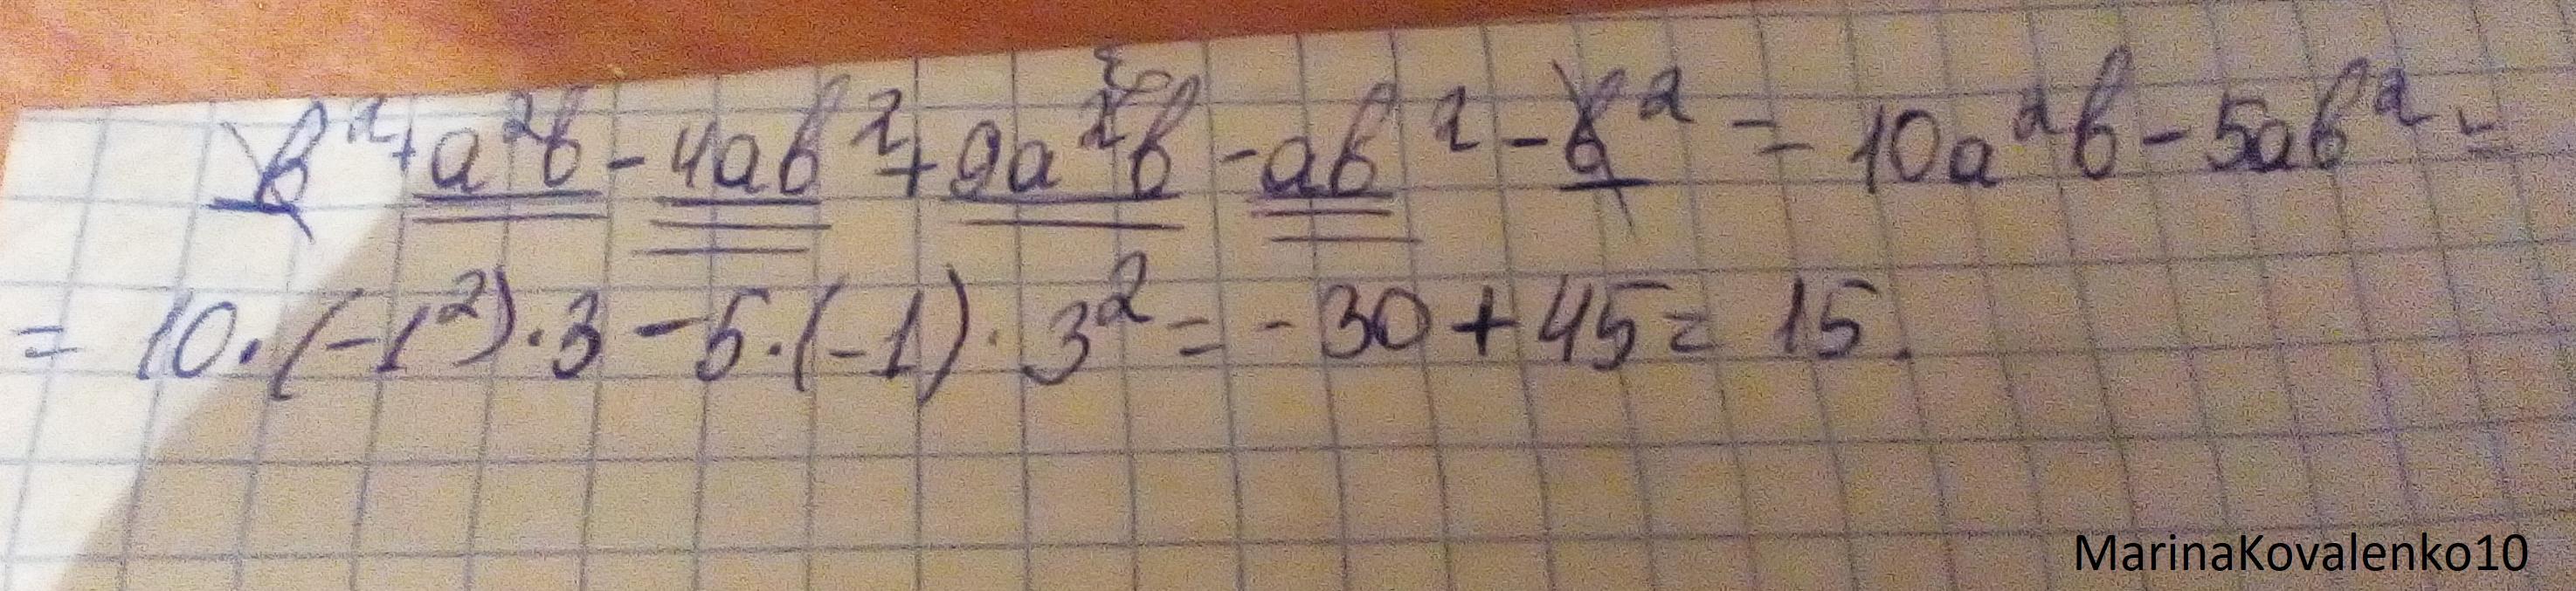 в² + а²в - 4ав² + 9а²в - ав² - в² = 10а²в - 5ав² =
= 10·(-1²)·3 - 5·(-1)·3² = -30 + 45 = 15.
MarinaKovalenko10